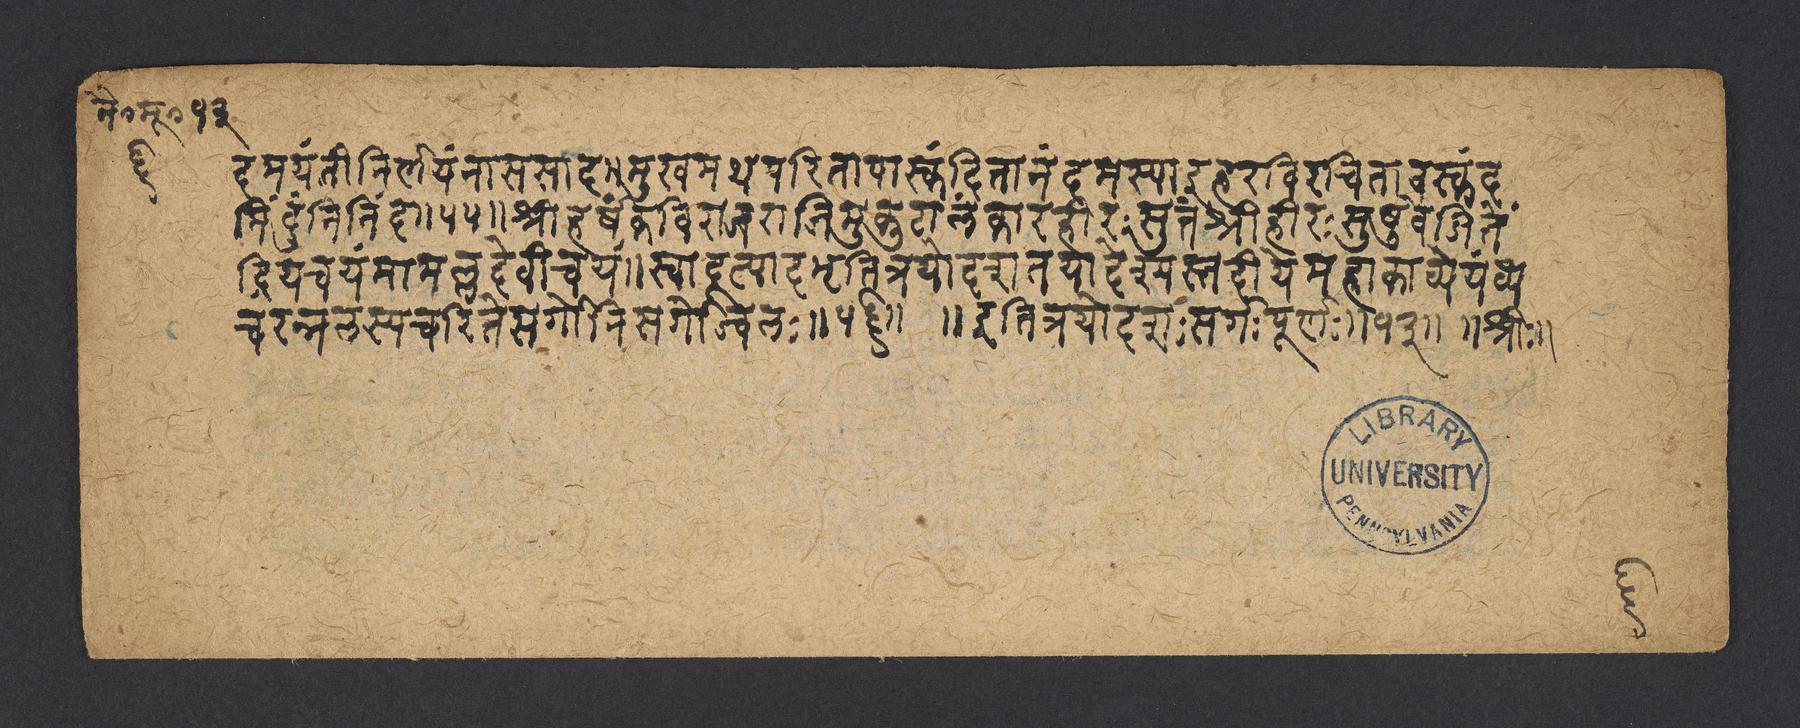 नै० मू० १३
६
दमयंती निर्णयं नाससाद ॥ मुखमथ परितापास्कंदितानंदमस्या इहरविरचितावस्कंद
मिंदुं निनिंद ॥ ५५ ॥ श्रीहर्षं कविराजराजिमुकुटालंकारहीरः सुतं श्रीहीरः सुषुवे जितें
द्रियचयं मामल्लदेवी च यं ॥ स्वादूत्पादभृति त्रयोदशतयादेश्यस्तदीये महाकाव्ये यं व्य
चरन्नलस्य चरिते सर्गो निसर्गोज्वलः ॥ ५६ ॥ ॥ इति त्रयोदशः सर्गः पूर्णः ॥ १३ ॥ ॥ श्रीः ॥
LIBRARY
UNIVERSITY
PENNSYLVANIA